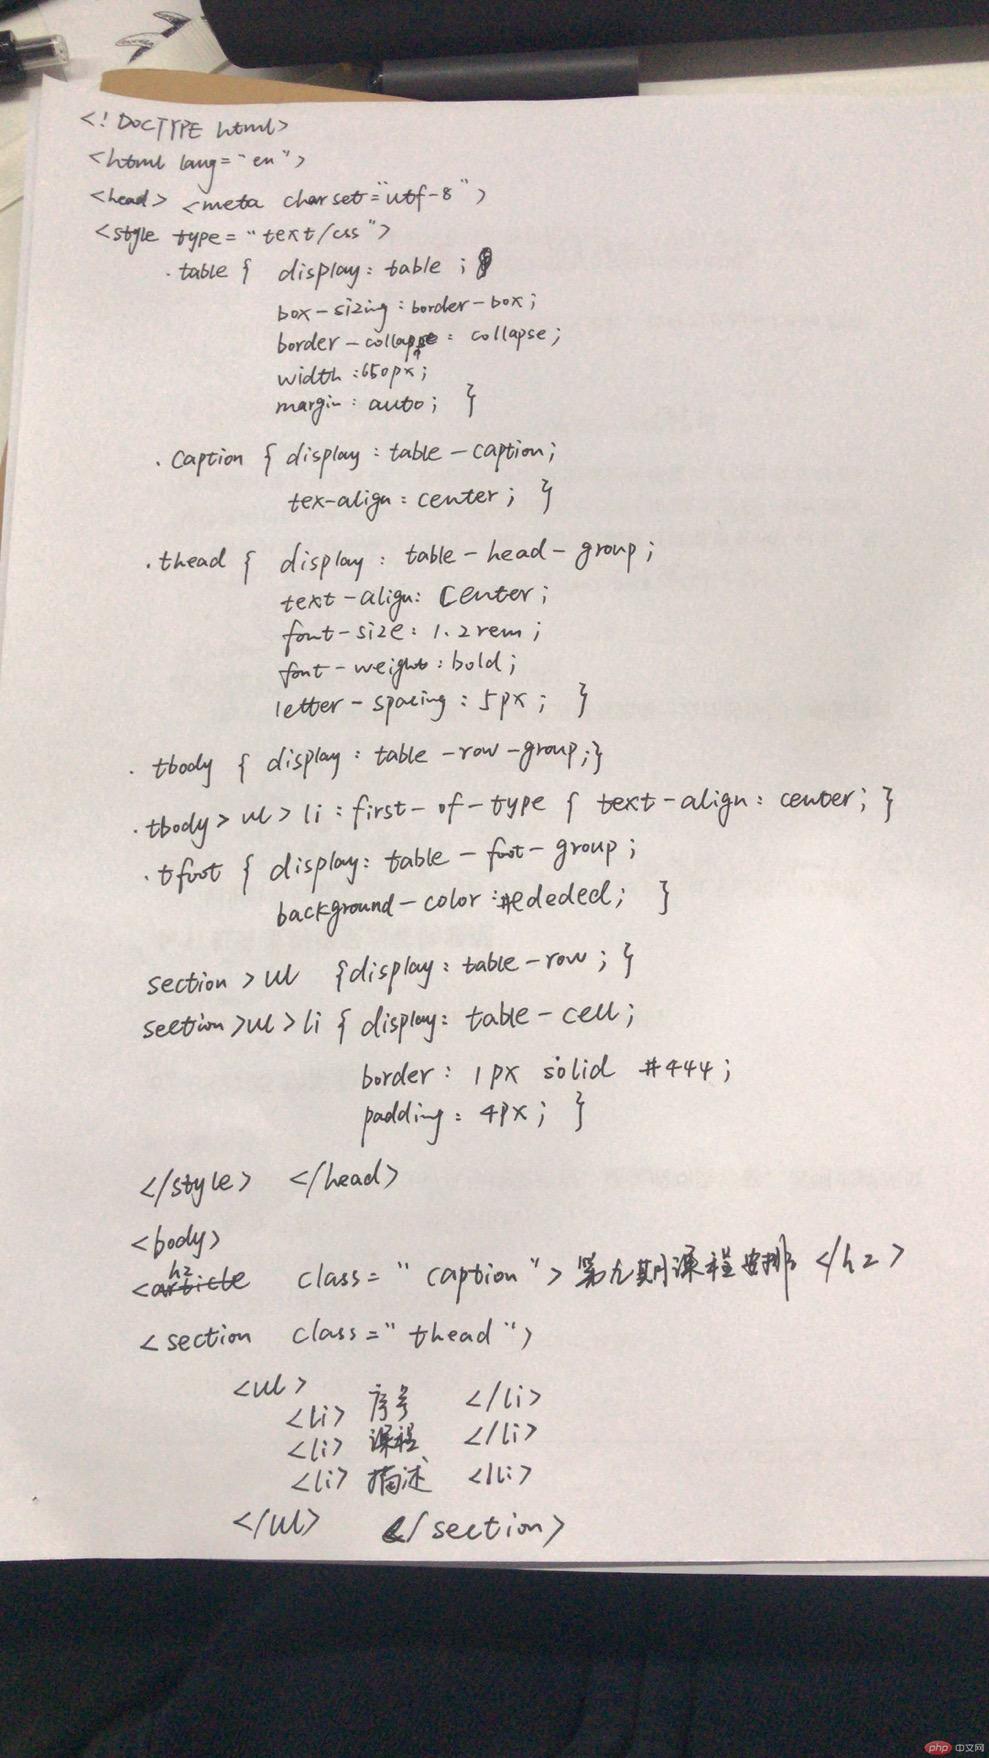 <! DOCTYPE html>
<html lang="en">
<head> <meta charset="utf-8">
<style type="text/css">
.table { display: table ;
box-sizing: border-box;
border-collapse: collapse;
width: 650px;
margin: auto; }
.caption { display: table-caption;
tex-align: center; }
.thead { display: table-head-group;
text-align: center;
font-size: 1.2rem;
font-weight: bold;
letter-spacing: 5px; }
.tbody { display: table-row-group;}
.tbody > ul > li:first-of-type { text-align: center; }
.tfoot { display: table-foot-group;
background-color: #ededed; }
section > ul {display: table-row; }
section>ul>li { display: table-cell;
border: 1px solid #444;
padding: 4px; }
</style> </head>
<body>
<h2 class="caption">第九期课程安排</h2>
<section class="thead">
<ul>
<li> 序号 </li>
<li> 课程 </li>
<li> 描述 </li>
</ul> </section>
php 中文网